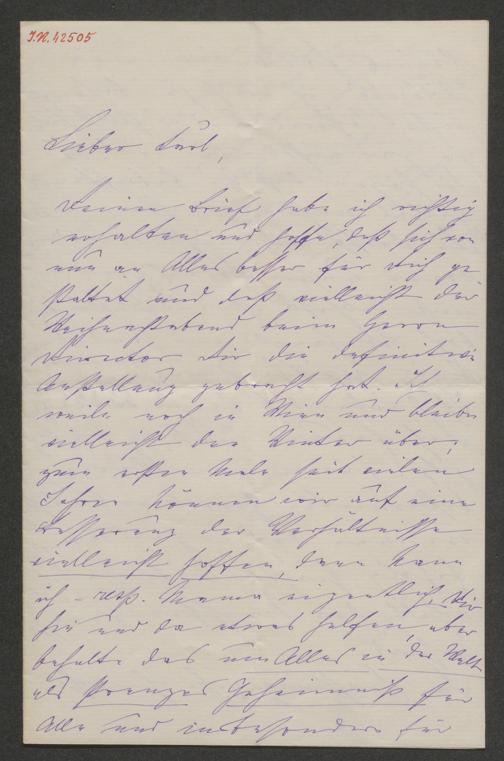 I.N. 42505
Lieber Karl,
Deinen Brief habe ich richtig
erhalten und hoffe, daß sich von
nun an Alles besser für dich ge
staltet und daß vielleicht der
Weihnachtsabend beim Herrn
Director dir die definitive
Anstellung gebracht hat. Ich
weile noch in Wien und bleibe
vielleicht den Winter über;
zum ersten Male seit vielen
Jahren können wir auf eine
Besserung der Verhältnisse
vielleicht hoffen, dann kann
ich – resp. Mama eigentlich, Dir
hie und da etwas helfen, aber
behalte das um Alles in der Welt
als strenges Geheimniß für
Alle und insbesondere für